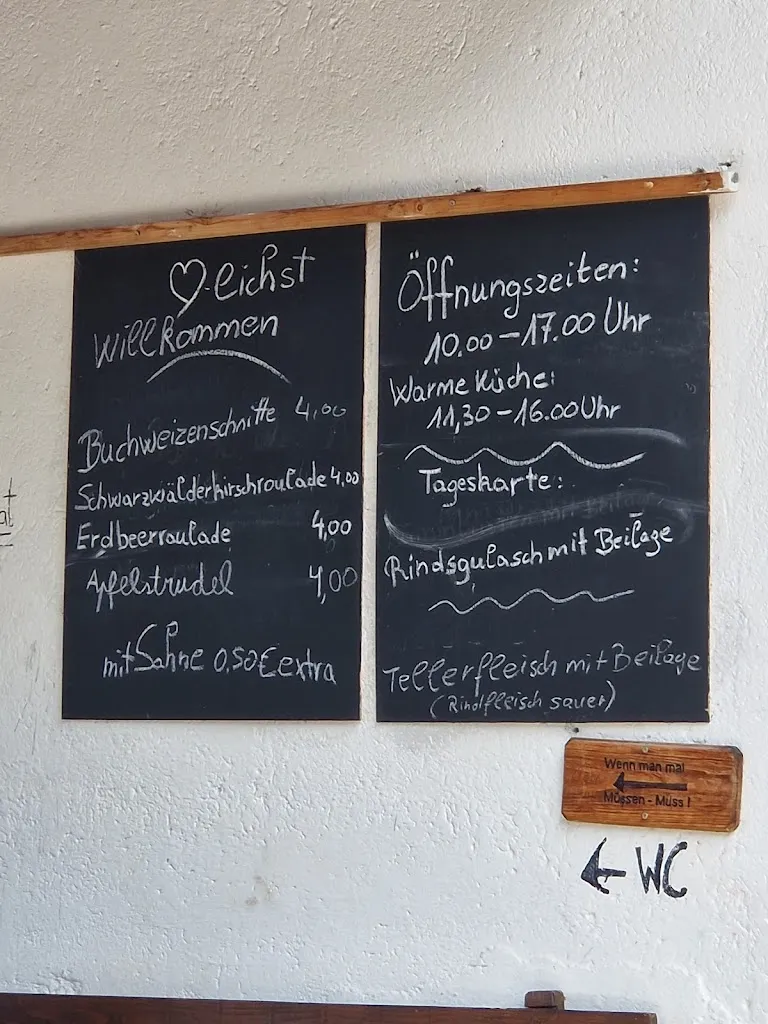 ♡-lichst
Willkommen
Buchweizenschnitte 4,00
Schwarzwälderkirschroulade 4,00
Erdbeerroulade 4,00
Apfelstrudel 4,00
mit Sahne 0,50€ extra
Öffnungszeiten:
10.00-17.00 Uhr
Warme Küche:
11,30-16.00 Uhr
Tageskarte:
Rindsgulasch mit Beilage
Tellerfleisch mit Beilage
(Rindfleisch sauer)
Wenn man mal
Müssen - Muss!
WC